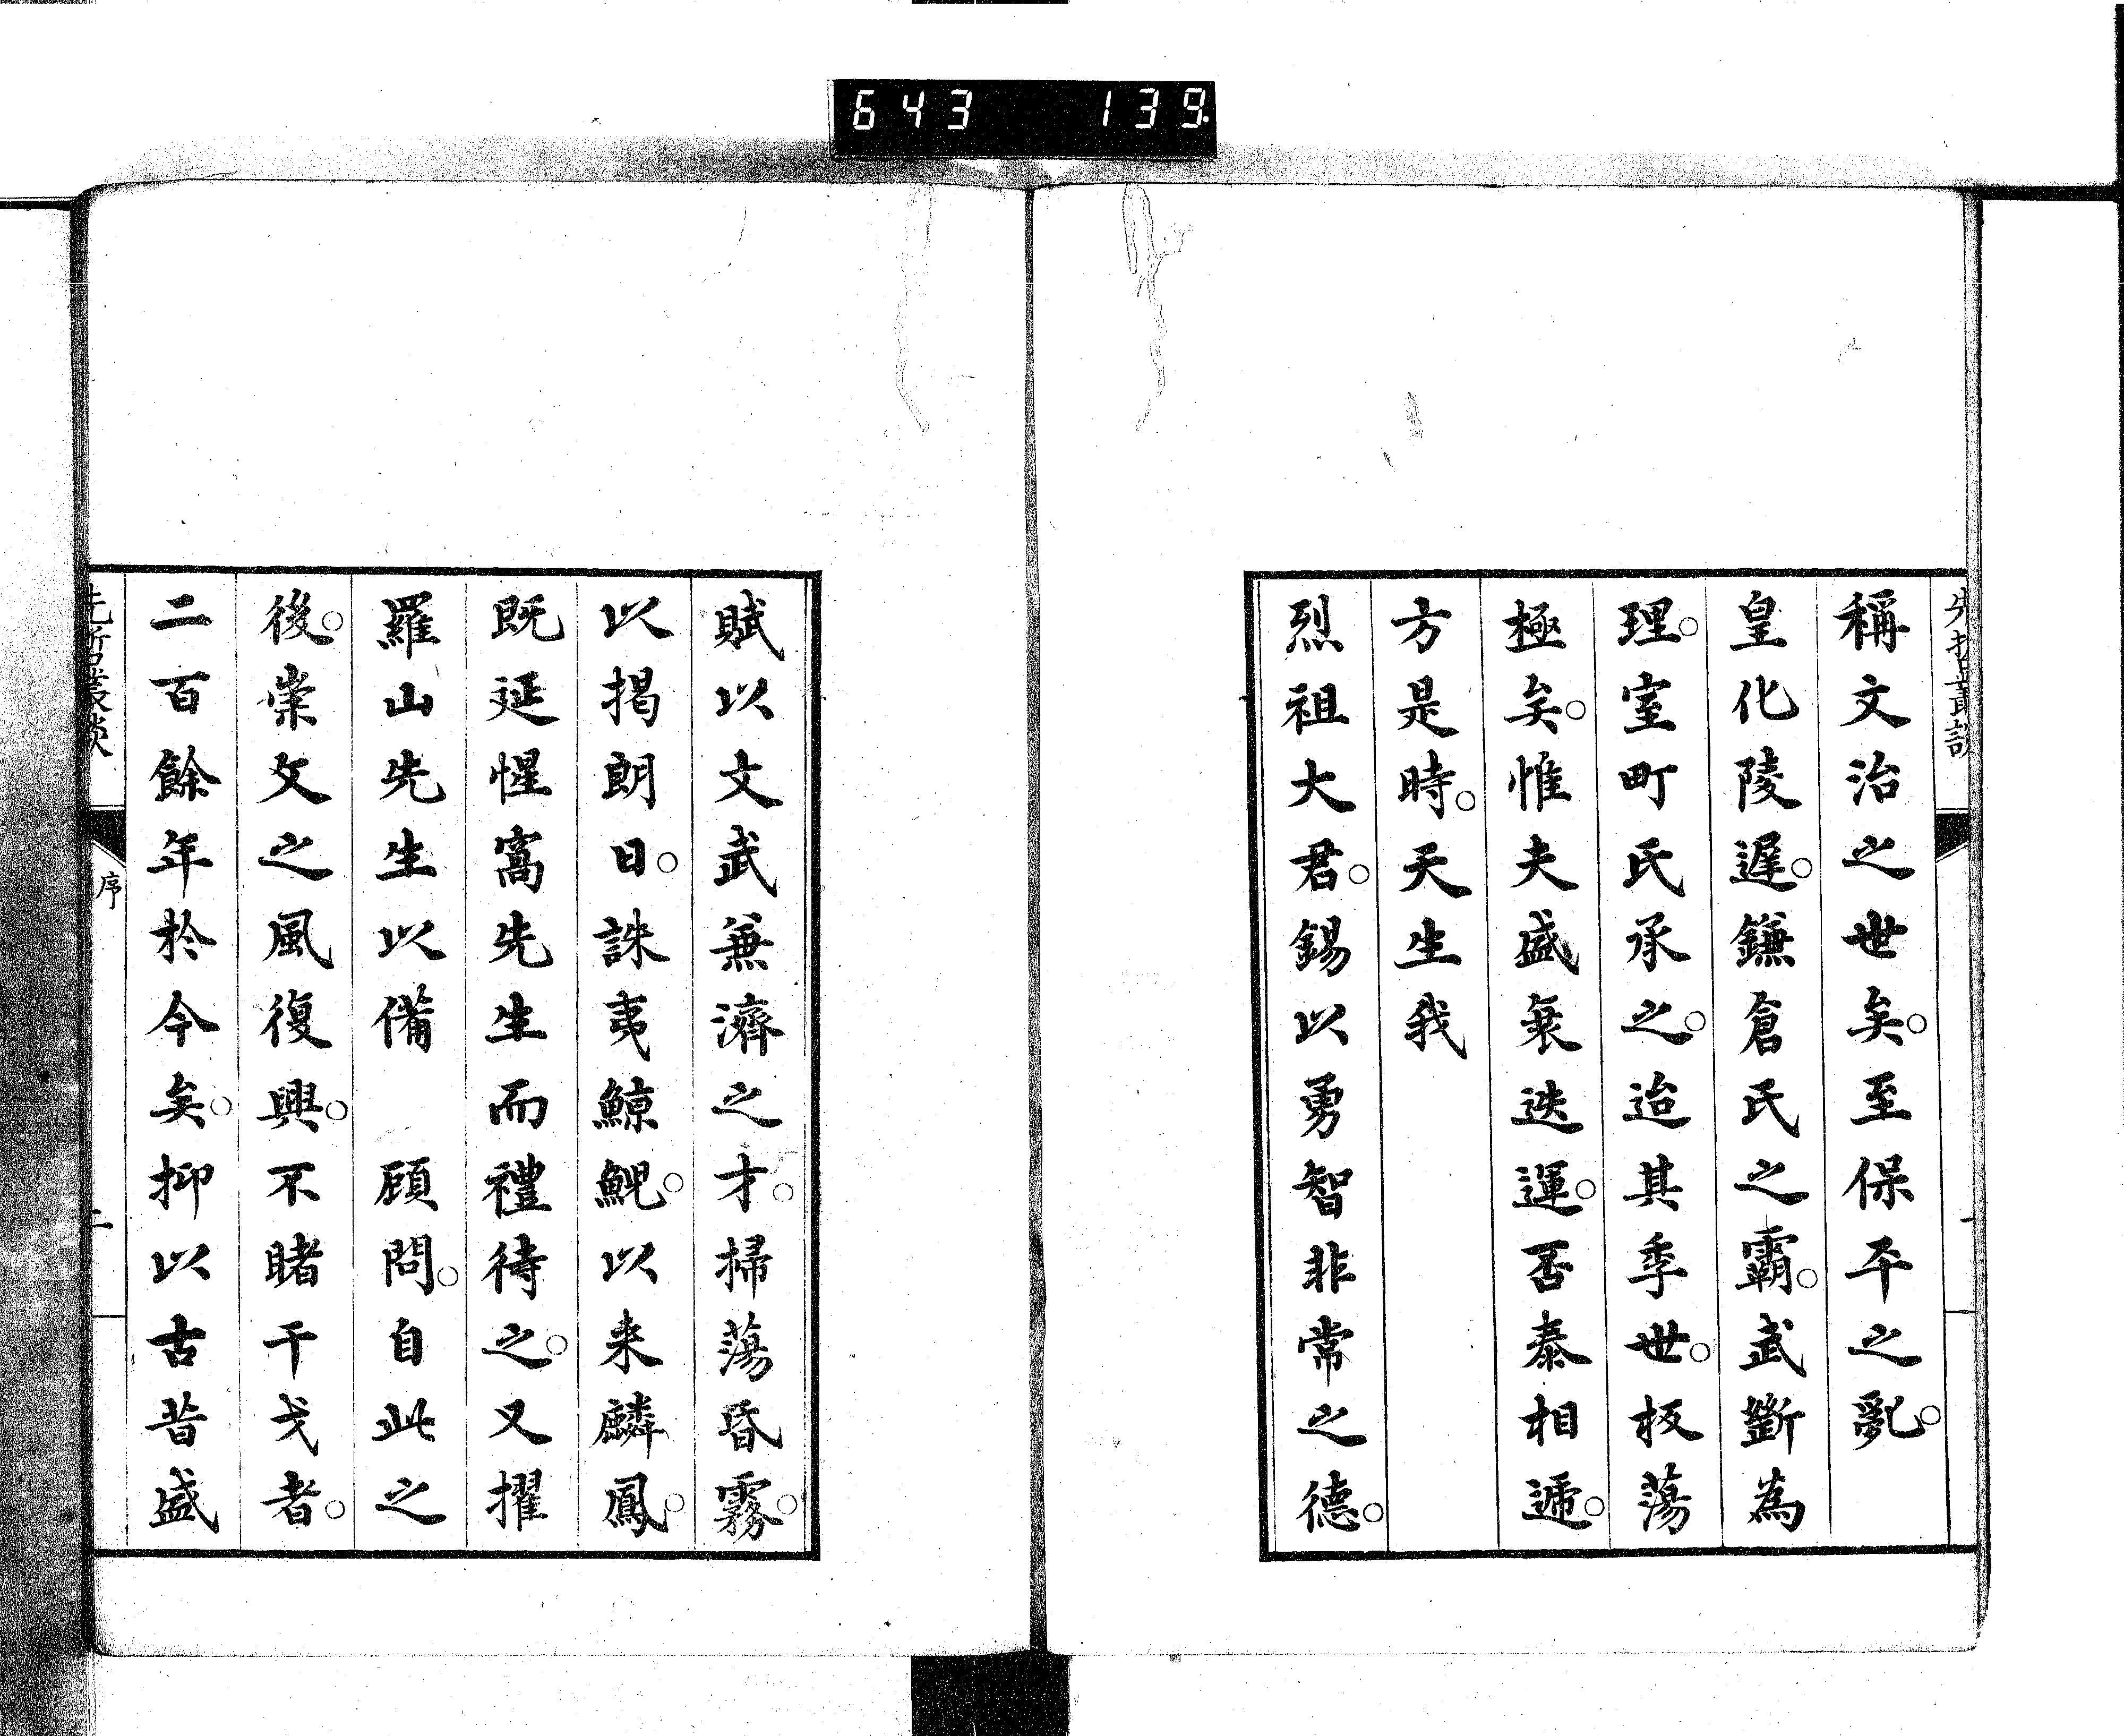 643 139
稱文治之世矣。至保平之亂。
皇化陵遲。鎌倉氏之霸。武斷為
理。室町氏承之。迨其季世。板蕩
極矣。惟夫盛衰迭運。否泰相遞。
方是時。天生我
烈祖大君。錫以勇智非常之德。
賦以文武兼濟之才。掃蕩昏霧。
以揭朗日。誅夷鯨鯢。以来麟鳳。
既延惺窩先生而禮待之。又擢
羅山先生以備　顧問。自此之
後。崇文之風復興。不睹干戈者。
二百餘年於今矣。抑以古昔盛
先哲叢談
序
二